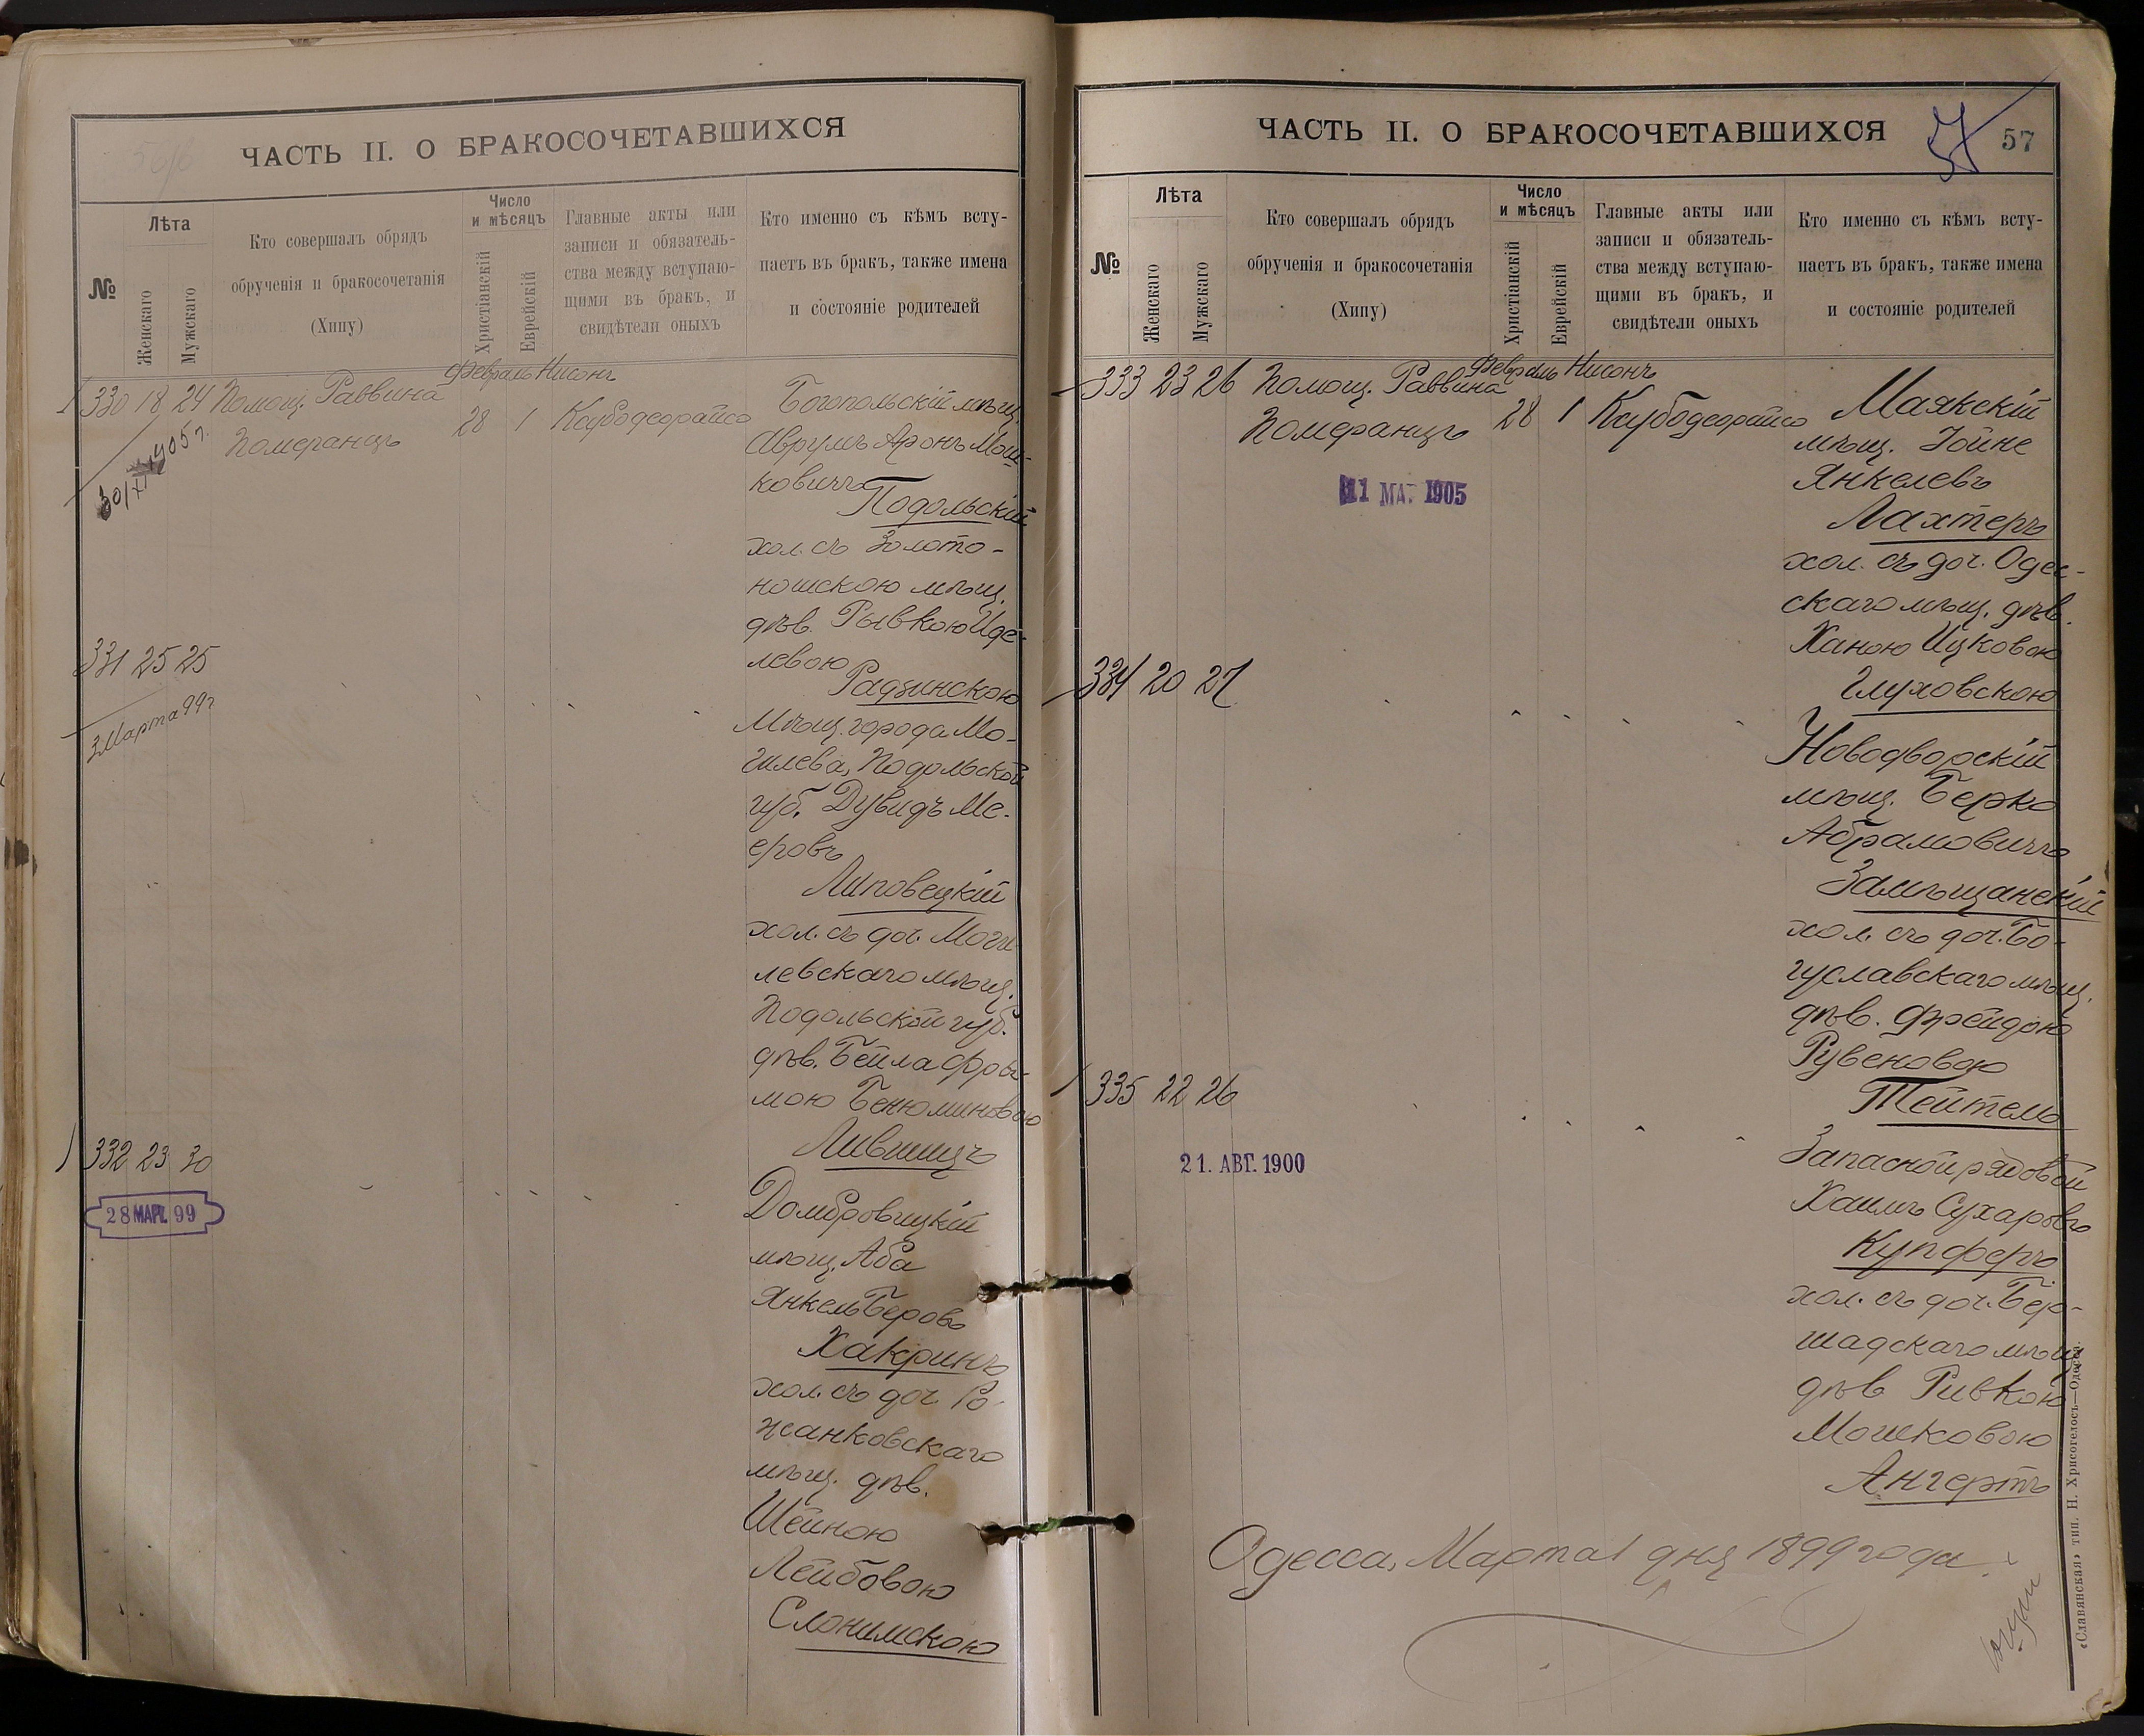 ЧАСТЬ II. О БРАКОСОЧЕТАВШИХСЯ
№
Лѣта
Женскаго
Мужскаго
Кто совершалъ обрядъ
обрученія и бракосочетанія
(Хипу)
Число
и мѣсяцъ
Христіанскій
Еврейскій
Главные акты или
записи и обязатель-
ства между вступаю-
щими въ бракъ, и
свидѣтели оныхъ
Кто именно съ кѣмъ всту-
паетъ въ бракъ, также имена
и состояніе родителей
Февраль Нисонъ
330 18 24 Помощ. Раввина
Померанцъ
28 1
30/XI 1905 г.
Богопольскій мѣщ.
Аврумъ Аронъ Мош-
ковичъ
Подольскій
хол. съ Золото-
ношскою мѣщ.
дѣв. Рывкою Иде-
левою
Радзинскою
331 25 25
3 Марта 99 г
Мѣщ. города Мо-
гилева, Подольской
губ. Дувидъ Ме-
еровъ
Липовецкій
хол. съ доч. Моги
левскаго мѣщ.
Подольской губ.
дѣв. Бейла Фры-
мою Бенюминовою
Лившицъ
332 23 30
28 МАР. 99
Домбровицкій
мѣщ. Аба
Янкель Беровъ
Хакринъ
хол. съ доч. Ро-
жанковскаго
мѣщ. дѣв.
Шейною
Лейбовою
Слонимскою
ЧАСТЬ II. О БРАКОСОЧЕТАВШИХСЯ
57
57
№
Лѣта
Женскаго
Мужскаго
Кто совершалъ обрядъ
обрученія и бракосочетанія
(Хипу)
Число
и мѣсяцъ
Христіанскій
Еврейскій
Главные акты или
записи и обязатель-
ства между вступаю-
щими въ бракъ, и
свидѣтели оныхъ
Кто именно съ кѣмъ всту-
паетъ въ бракъ, также имена
и состояніе родителей
Февраль Нисонъ
333 23 26 Помощ. Раввина
Померанцъ
28 1
1905
Маякскій
мѣщ. Іойне
Янкелевъ
Лахтеръ
хол. съ доч. Одес-
скаго мѣщ. дѣв.
Ханою Ицковою
Глуховскою
334 20 27
Новодворскій
мѣщ. Берко
Абрамовичъ
Замѣщанскій
хол. съ доч. Бо-
гуславскаго мѣщ.
дѣв. Фрейдою
Рувеновою
Тейтель
335 22 26
21. АВГ. 1900
Запасной рядовой
Хаимъ Сухаровъ
Купферъ
хол. съ доч. Бер-
шадскаго мѣщ
дѣв Ривкою
Мошковою
Ангертъ
Одесса, Марта 1 дня 1899 года.
«Славянская» тип. Н. Хрисогелосъ—Одесса.